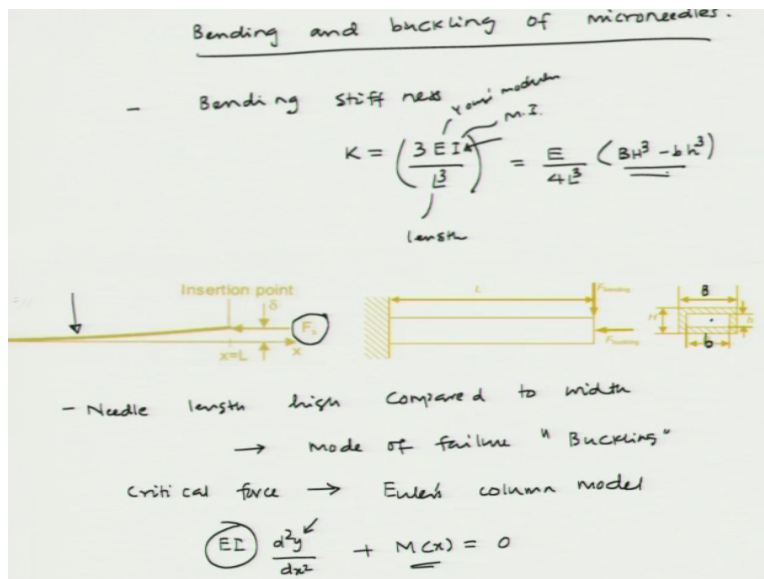 Bending and buckling of microneedles.
- Bending stiffness
Youns' modulus
M.I.
K = (3EI / L³) = E / 4L³ (BH³ - bh³)
length
Insertion point
δ
F
x=L
x
L
F bending
F buckling
B
H
h
b
- Needle length high compared to width
→ mode of failure "Buckling"
Critical force → Euler's column model
EI d²y/dx² + M(x) = 0